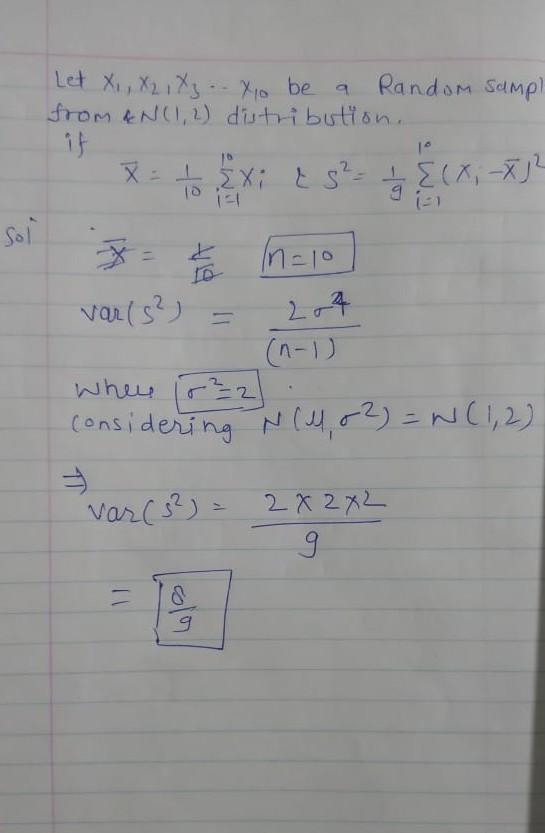 Let X₁, X₂, X₃ .. X₁₀ be a Random Sampl
from N(1,2) distribution.
if
X̄ = 1/10 Σᵢ₌₁¹⁰ Xᵢ & S² = 1/9 Σᵢ₌₁¹⁰ (Xᵢ - X̄)²
Sol
X̄ = 1/10 n=10
var(S²) = 2σ⁴/(n-1)
When σ²=2
Considering N(μ, σ²) = N(1,2)
⇒
var(S²) = 2×2×2/9
= 8/9